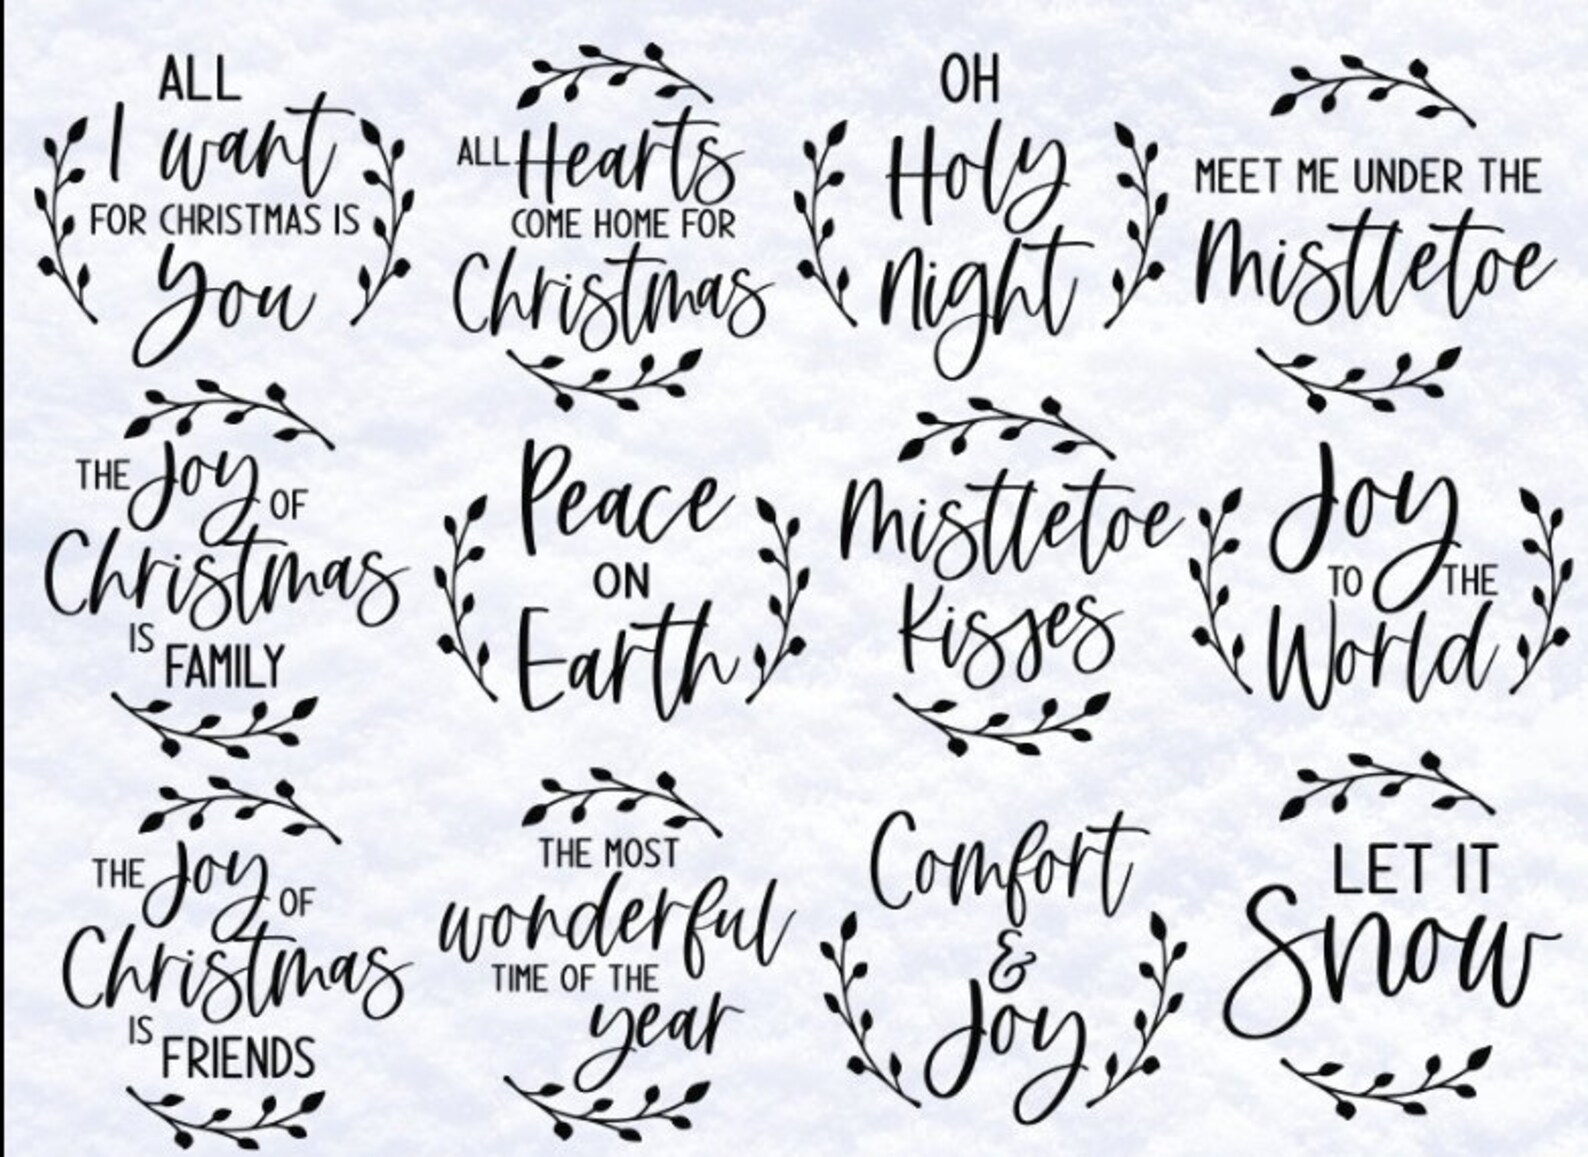 ALL
I want
FOR CHRISTMAS IS
you
ALL Hearts
COME HOME FOR
Christmas
OH
Holy
Night
MEET ME UNDER THE
Mistletoe
THE Joy OF
Christmas
IS FAMILY
Peace
ON
Earth
Mistletoe
Kisses
Joy
TO THE
World
THE Joy OF
Christmas
IS FRIENDS
THE MOST
wonderful
TIME OF THE
year
Comfort
&
Joy
LET IT
Snow